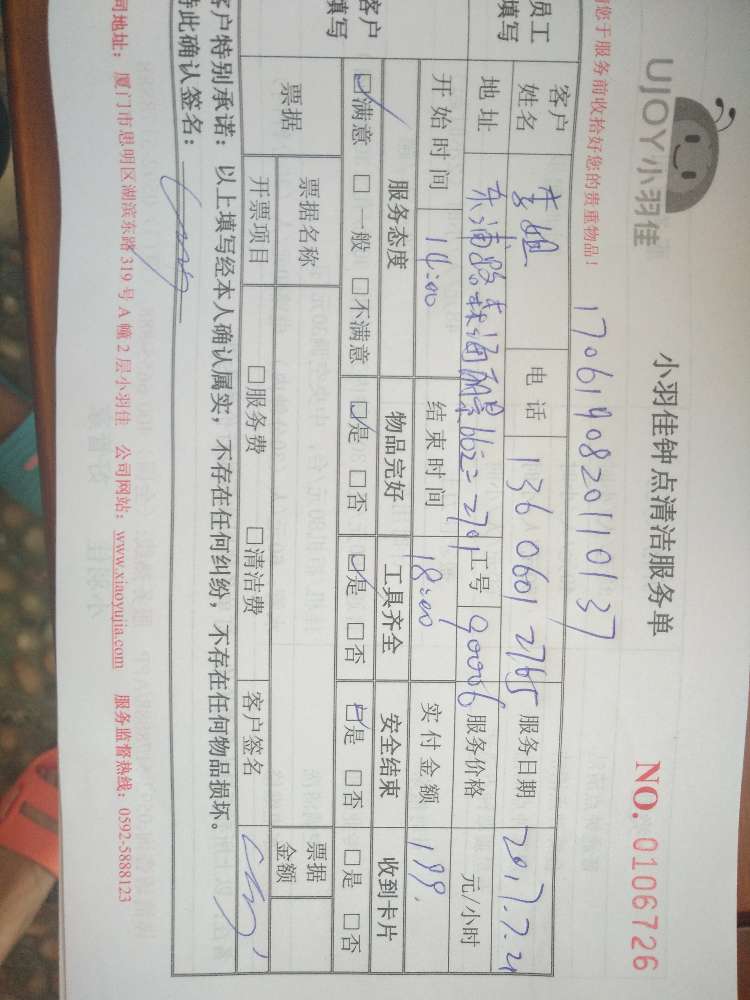 UJOY小羽佳
小羽佳钟点清洁服务单
NO. 0106726
您于服务前收拾好您的贵重物品！
1706190820110137
员工填写
客户姓名 李姐 电话 13606012765 服务日期 2017.7.21
地址 东浦路 2701 工号 90006 服务价格 元/小时
开始时间 14:00 结束时间 18:00 实付金额 199.
客户填写
服务态度 物品完好 工具齐全 安全结束 收到卡片
☑满意 □一般 □不满意 ☑是 □否 ☑是 □否 ☑是 □否 □是 □否
票据 票据名称 票据金额
开票项目 □服务费 □清洁费 客户签名
客户特别承诺：以上填写经本人确认属实，不存在任何纠纷，不存在任何物品损坏。
特此确认签名：
司地址：厦门市思明区湖滨东路319号A幢2层小羽佳 公司网站：www.xiaoyujia.com 服务监督热线：0592-5888123